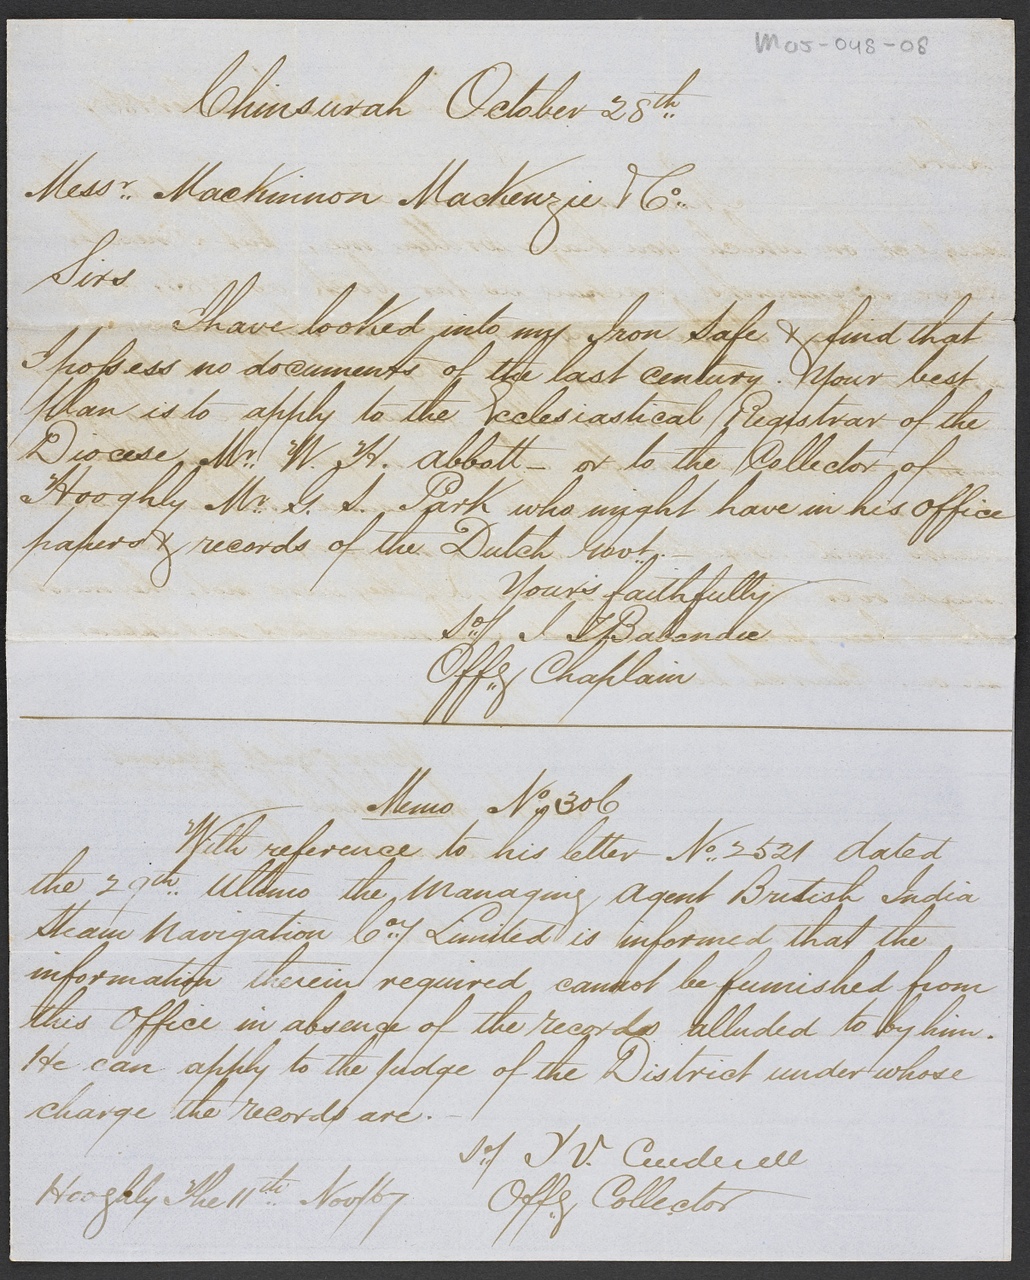 M05-048-08
Chinsurah October 28th
Messr. Mackinnon Mackenzie & Co.
Sirs
I have looked into my Iron Safe & find that
I possess no documents of the last century. Your best
plan is to apply to the Ecclesiastical Registrar of the
Diocese, Mr. W. H. Abbott - or to the Collector of
Hooghly Mr. G. S. Park who might have in his office
papers & records of the Dutch Govt. -
Yours faithfully
Sd/ J
Offg Chaplain
Memo No. 306
With reference to his letter No. 2521 dated
the 29th. Ultimo the Managing Agent British India
Steam Navigation Coy Limited is informed that the
information therein required cannot be furnished from
this Office in absence of the records alluded to by him.
He can apply to the Judge of the District under whose
charge the records are. -
Sd/ V.
Hooghly The 11th. Nov/67 Offg Collector